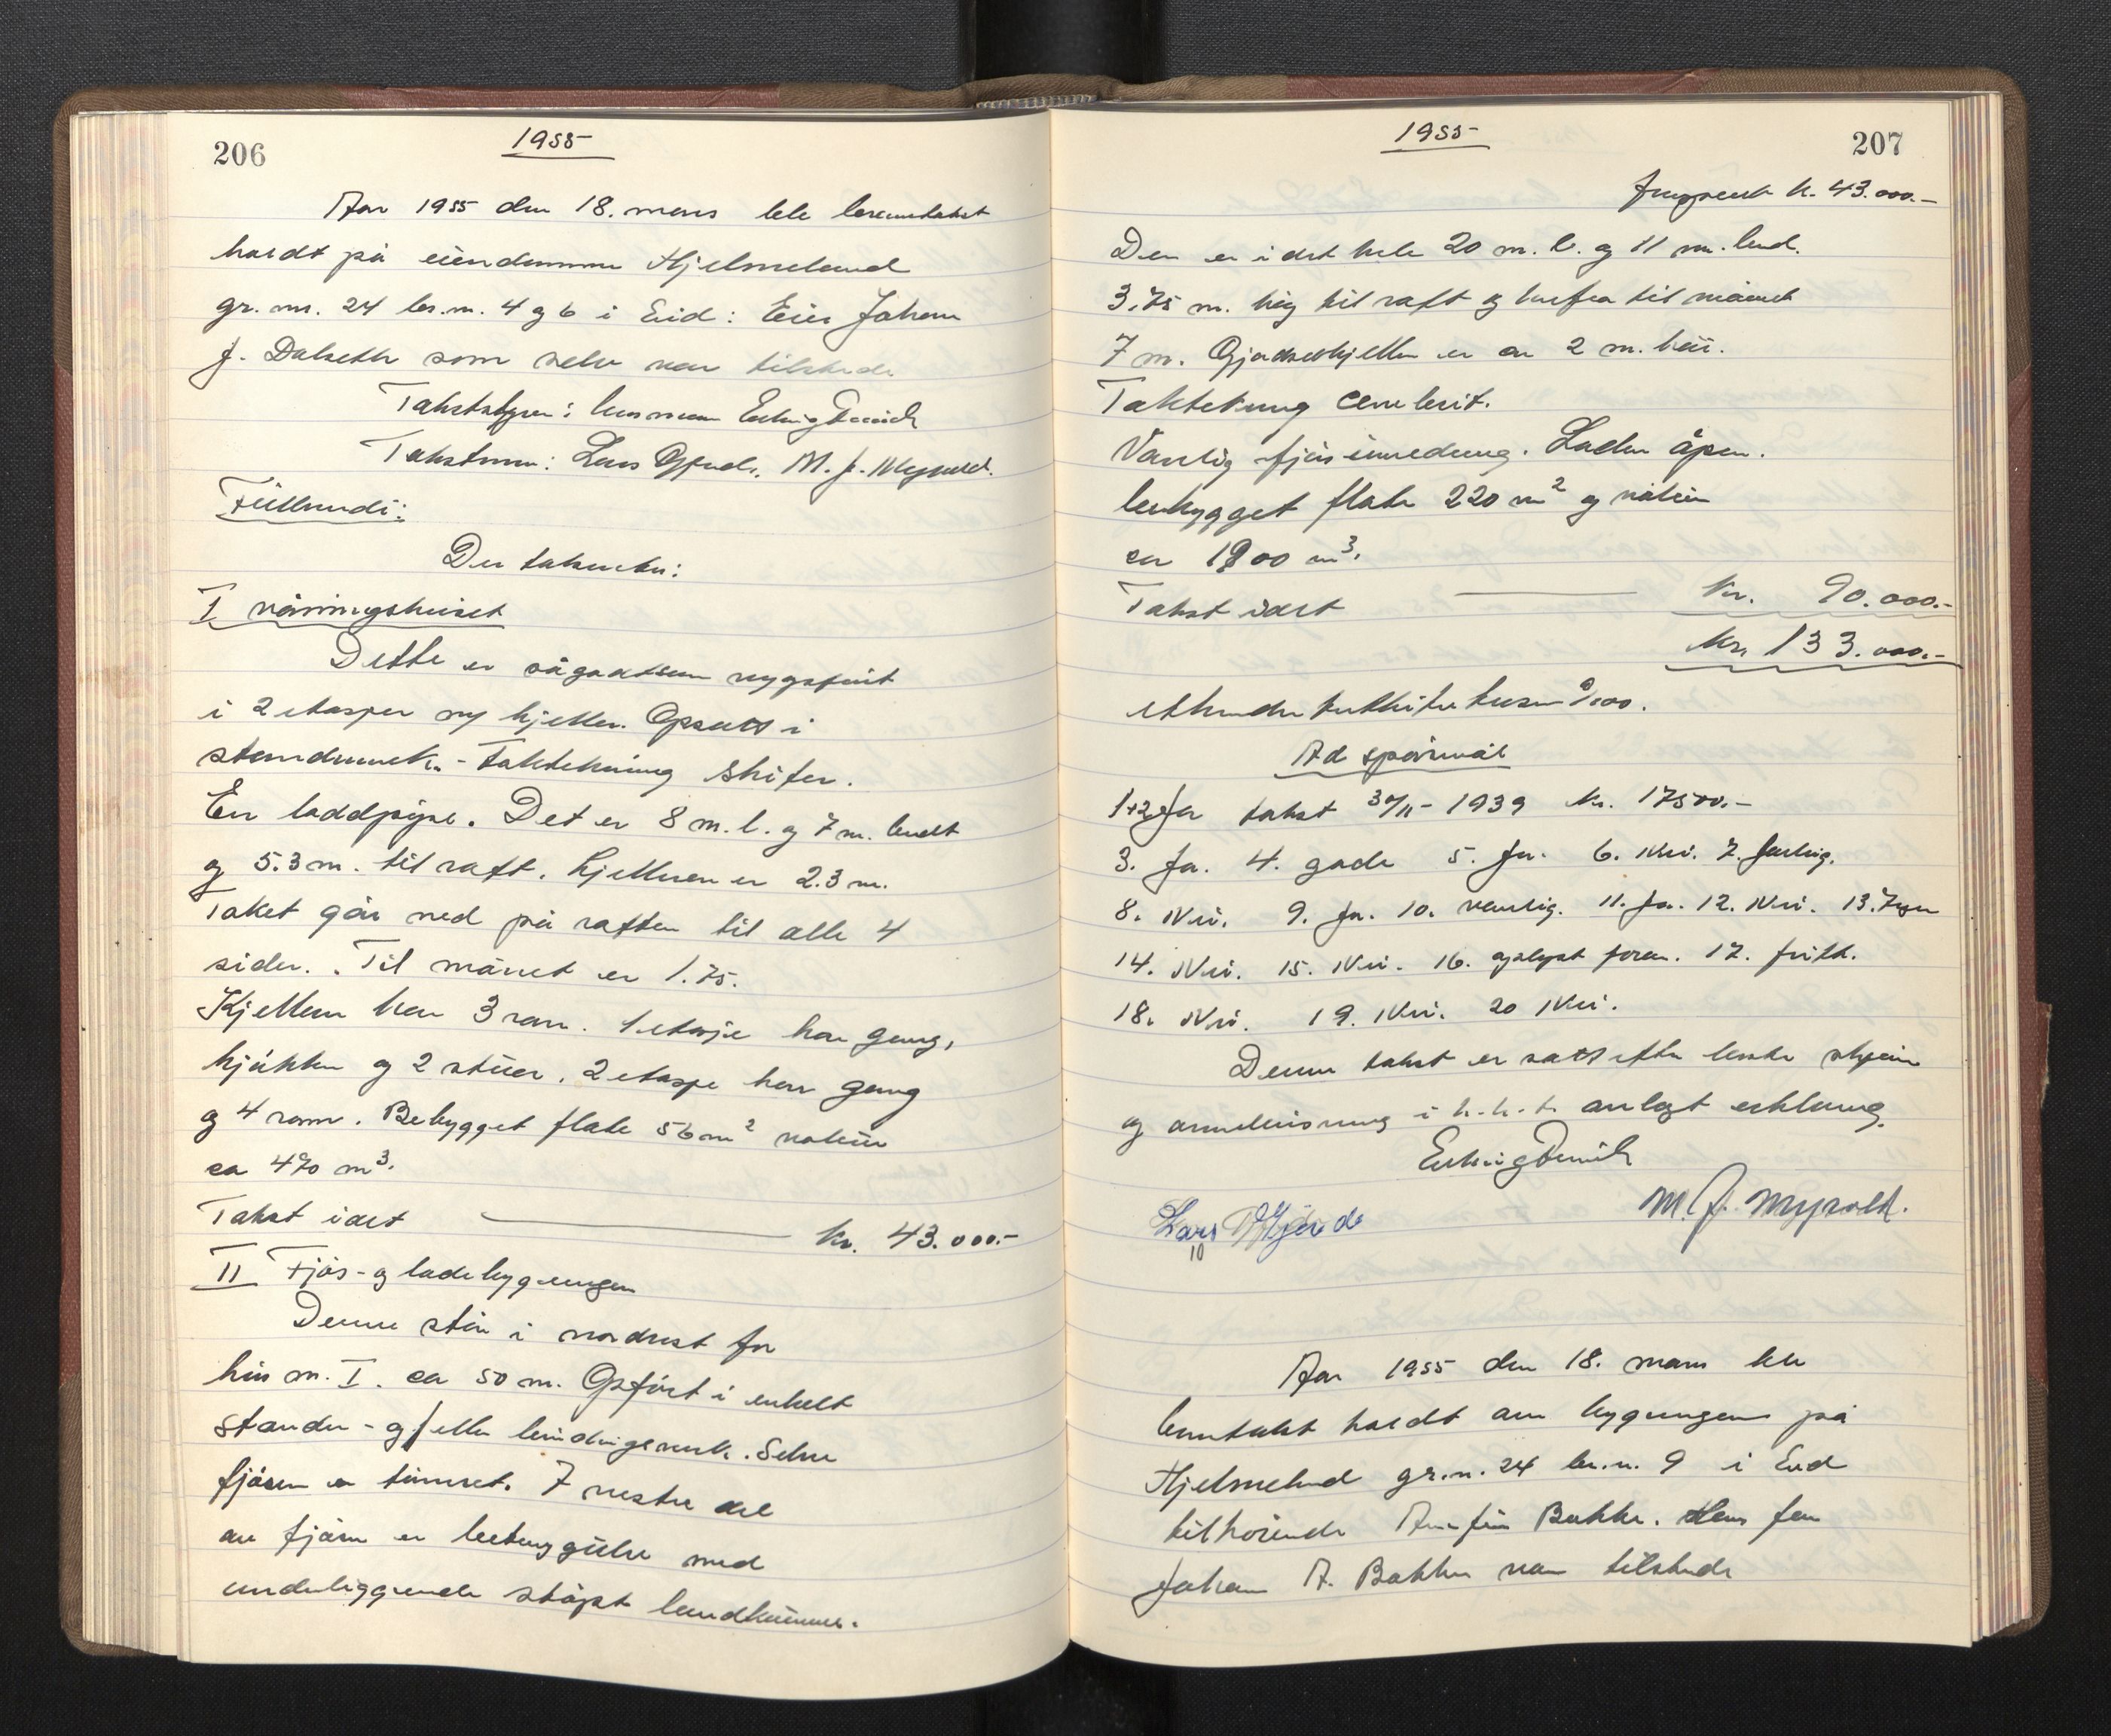 206
1955
Aar 1955 den 18. mars ble branntakst
holdt på eiendommen Hjelmeland
gr. nr. 24 br.nr. 4 og 6 i Eid: Eier Johan
J. Dalseth som selv var tilstede
Takstbestyrer: lensmann
Takstmenn: Lars Gjerde, M. J. Myrvold.
Der takseres:
I våningshuset
Dette er sågodtsom nyoppført
i 2 etasjer ny kjeller. Oppsatt i
standverk. - Taktekning skifer.
En loddpipe. Det er 8 m. l. og 7 m. bredt
og 5.3 m. til raft. Kjelleren er 2.3 m.
Taket går ned på raften til alle 4
sider. Til mønet er 1.75.
Kjelleren har 3 rom. 1 etasje har gang,
kjøkken og 2 stuer. 2 etasje har gang
og 4 rom. Bebygget flate 56 m² volum
ca 470 m³.
Takst idet kr. 43.000.-
II Fjøs- og ladebygningen
Denne står i nordvest for
hus nr. I. ca 50 m. Oppført i enkelt
stander- og eller bindingsverk. Selve
fjøsen er tømret. I vestre del
av fjøsen er med
underliggende støpt landkummer.
1955
207
Fremført kr. 43.000.-
Den er i det hele 20 m. l. og 11 m. bred.
3.75 m. høg til raft og herfra til mønet
7 m. Gjødselkjelleren er ca 2 m. høi.
Taktekning
Vanlig fjøsinnredning. Laden åpen.
bebygget flate 220 m² og volum
ca 1900 m³.
Takst idet Kr. 90.000.-
Kr. 133.000.-
etthundreogtrettitretusen 0/00.
Ad spørsmål
1+2 Før takst 30/11-1939 kr. 17500.-
3. Ja. 4. gode 5. Ja. 6. Nei. 7. ferdig.
8. Nei. 9. Ja. 10. vanlig. 11. Ja. 12. Nei. 13.
14. Nei. 15. Nei. 16. oplyst foran. 17.
18. Nei. 19. Nei. 20 Nei.
Denne takst er satt efter beste skjønn
og overbevisning i h.h.t. avlagt erklæring.
M. J. Myrvold.
Lars Gjerde
10
Aar 1955 den 18. mars ble
branntakst holdt over bygningene på
Hjelmeland gr.n. 24 br.n. 9 i Eid
tilhørende Arnfinn Bakke. Hans far
Johan A. Bakke var tilstede